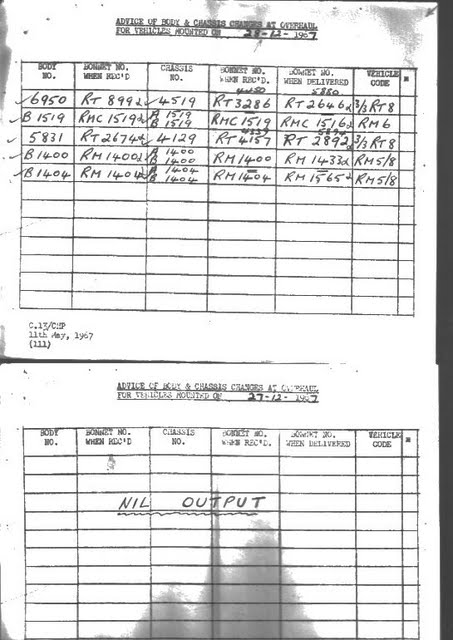 ADVICE OF BODY & CHASSIS CHANGES AT OVERHAUL
FOR VEHICLES MOUNTED ON 28-12-1967
BODY NO. BONNET NO. WHEN REC'D. CHASSIS NO. BONNET NO. WHEN REC'D. BONNET NO. WHEN DELIVERED VEHICLE CODE
6950 RT 899 4519 RT3286 RT 2646 3/3 RT8
B 1519 RMC 1519 A 1519 B 1519 RMC 1519 RMC 1516 RM6
5831 RT 2674 4129 RT 4157 RT 2892 3/3 RT8
B1400 RM 1400 A 1400 B 1400 RM 1400 RM 1433 RM5/8
B1404 RM 1404 A 1404 B 1404 RM 1404 RM 1565 RM5/8
C.13/CMP
11th May, 1967
(111)
ADVICE OF BODY & CHASSIS CHANGES AT OVERHAUL
FOR VEHICLES MOUNTED ON 27-12-1967
BODY NO. BONNET NO. WHEN REC'D. CHASSIS NO. BONNET NO. WHEN REC'D. BONNET NO. WHEN DELIVERED VEHICLE CODE
NIL OUTPUT